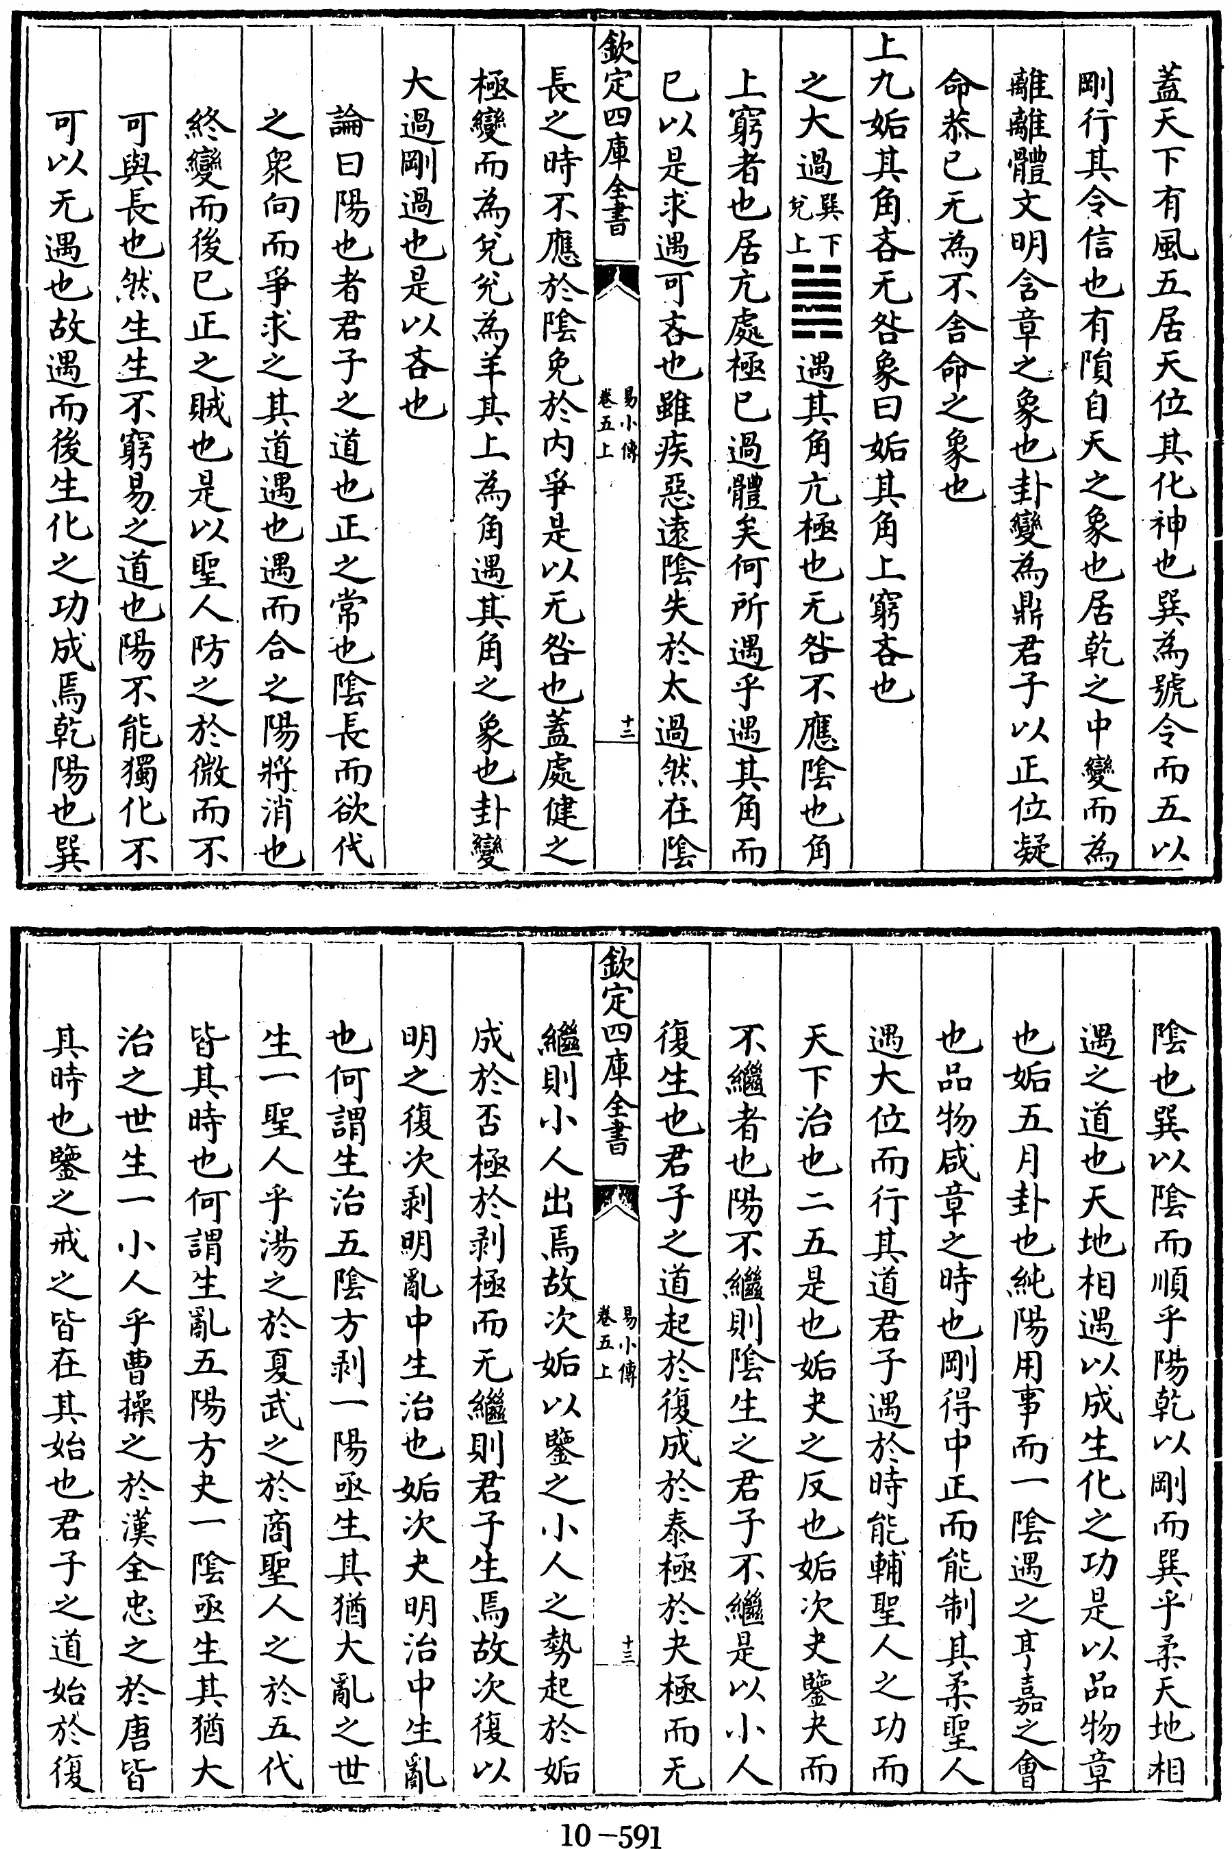 蓋天下有風五居天位其化神也巽為號令而五以
剛行其令信也有隕自天之象也居乾之中變而為
離離體文明含章之象也卦變為鼎君子以正位凝
命恭已无為不舍命之象也
上九姤其角吝无咎象曰姤其角上窮吝也
之大過巽下兌上䷛遇其角亢極也无咎不應陰也角
上窮者也居亢處極已過體矣何所遇乎遇其角而
已以是求遇可吝也雖疾惡遠陰失於太過然在陰
欽定四庫全書
易小傳
卷五上
十三
長之時不應於陰免於内爭是以无咎也蓋處健之
極變而為兌兌為羊其上為角遇其角之象也卦變
大過剛過也是以吝也
論曰陽也者君子之道也正之常也陰長而欲代
之衆向而爭求之其道遇也遇而合之陽將消也
終變而後已正之賊也是以聖人防之於微而不
可與長也然生生不窮易之道也陽不能獨化不
可以无遇也故遇而後生化之功成焉乾陽也巽
陰也巽以陰而順乎陽乾以剛而巽乎柔天地相
遇之道也天地相遇以成生化之功是以品物章
也姤五月卦也純陽用事而一陰遇之亨嘉之會
也品物咸章之時也剛得中正而能制其柔聖人
遇大位而行其道君子遇於時能輔聖人之功而
天下治也二五是也姤夬之反也姤次夬鑒夬而
不繼者也陽不繼則陰生之君子不繼是以小人
復生也君子之道起於復成於泰極於夬極而无
欽定四庫全書
易小傳
卷五上
十三
繼則小人出焉故次姤以鑒之小人之勢起於姤
成於否極於剥極而无繼則君子生焉故次復以
明之復次剥明亂中生治也姤次夬明治中生亂
也何謂生治五陰方剥一陽亟生其猶大亂之世
生一聖人乎湯之於夏武之於商聖人之於五代
皆其時也何謂生亂五陽方夬一陰亟生其猶大
治之世生一小人乎曹操之於漢全忠之於唐皆
其時也鑒之戒之皆在其始也君子之道始於復
10-591